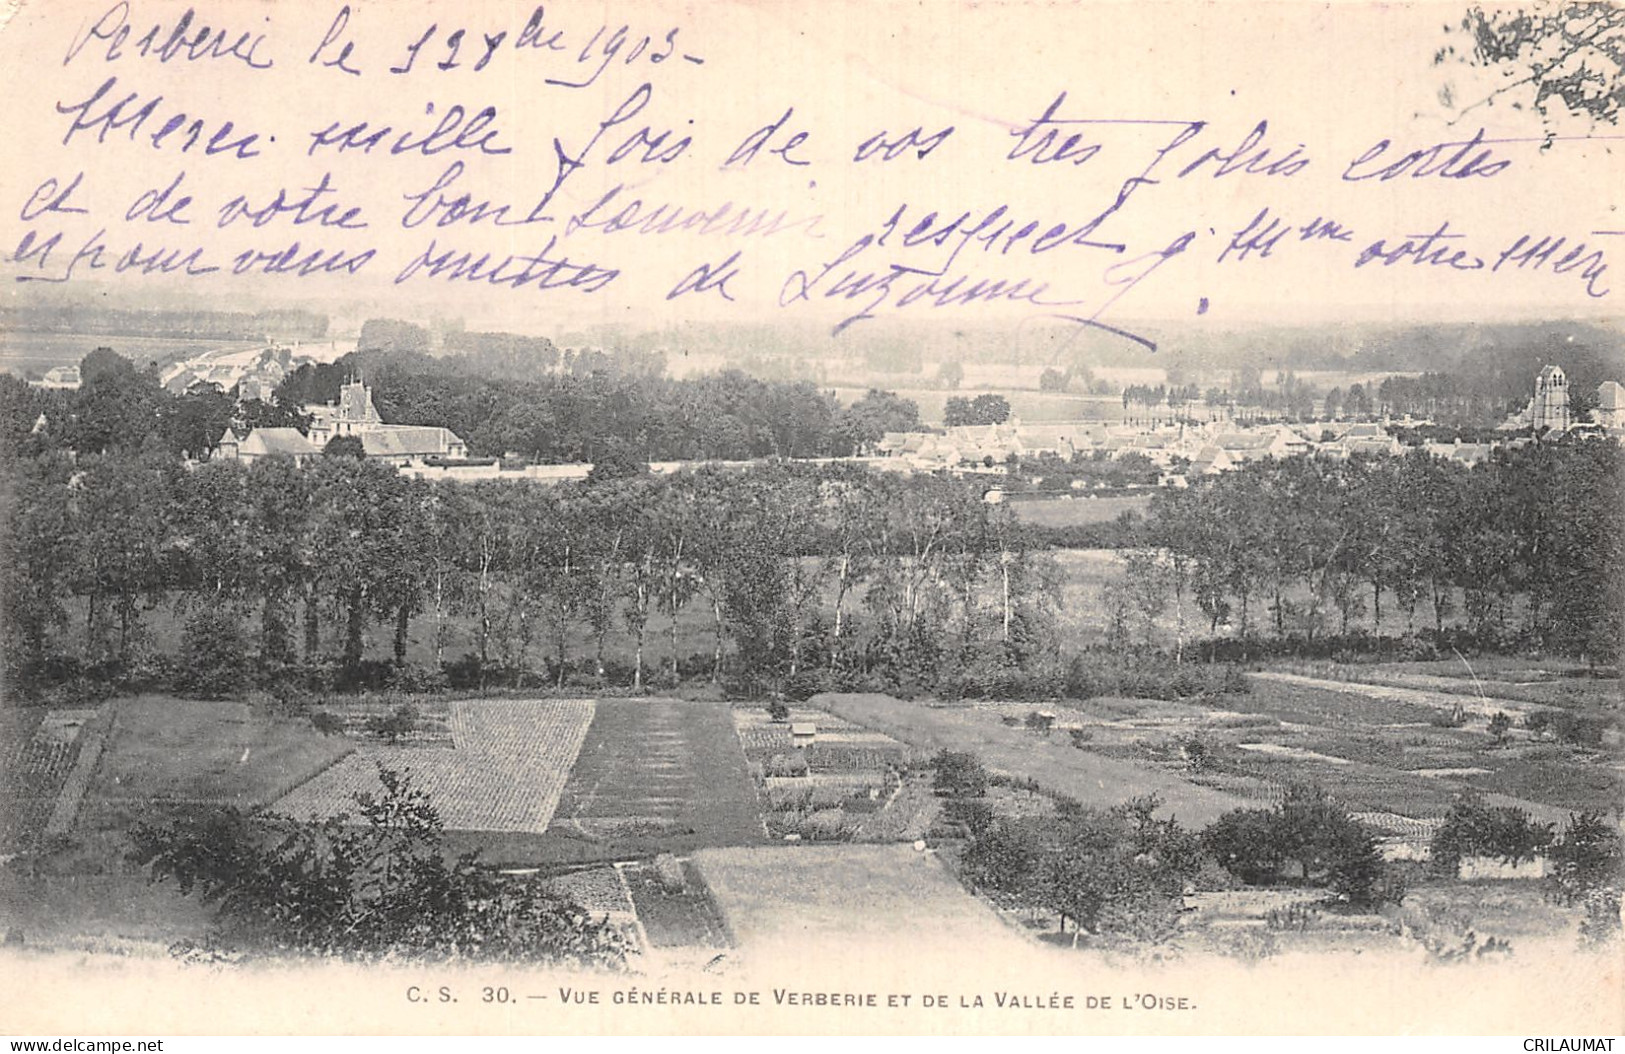 Verberie le 1 28bre 1903-
Merci mille fois de vos tres jolies cartes
et de votre bon souvenir respect a Mme votre Mère
et pour vous amitiés de
C. S. 30. — VUE GÉNÉRALE DE VERBERIE ET DE LA VALLÉE DE L'OISE.
delcampe.net
CRILAUMAT